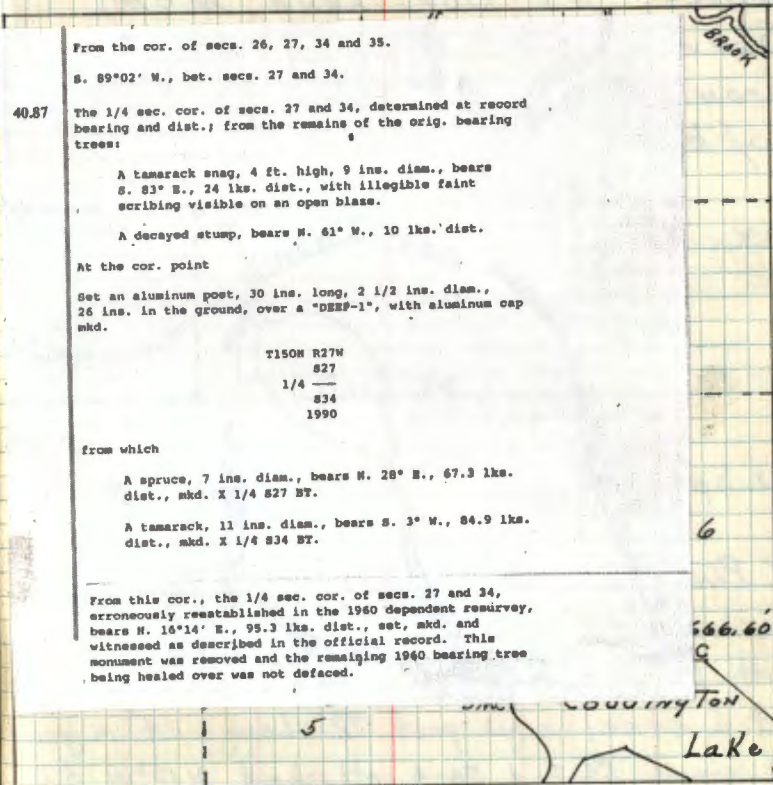 BROOK
From the cor. of secs. 26, 27, 34 and 35.
S. 89°02' W., bet. secs. 27 and 34.
40.87 The 1/4 sec. cor. of secs. 27 and 34, determined at record
bearing and dist.; from the remains of the orig. bearing
trees:
A tamarack snag, 4 ft. high, 9 ins. diam., bears
S. 83° E., 24 lks. dist., with illegible faint
scribing visible on an open blaze.
A decayed stump, bears N. 61° W., 10 lks. dist.
At the cor. point
Set an aluminum post, 30 ins. long, 2 1/2 ins. diam.,
26 ins. in the ground, over a "DEEP-1", with aluminum cap
mkd.
T150N R27W
S27
1/4 ——
S34
1990
from which
A spruce, 7 ins. diam., bears N. 28° E., 67.3 lks.
dist., mkd. X 1/4 S27 BT.
A tamarack, 11 ins. diam., bears S. 3° W., 84.9 lks.
dist., mkd. X 1/4 S34 BT.
6
From this cor., the 1/4 sec. cor. of secs. 27 and 34,
erroneously reestablished in the 1960 dependent resurvey,
bears N. 16°14' E., 95.3 lks. dist., set, mkd. and
witnessed as described in the official record. This
monument was removed and the remaining 1960 bearing tree
being healed over was not defaced.
666.60'
C
5
CODDINGTON
Lake